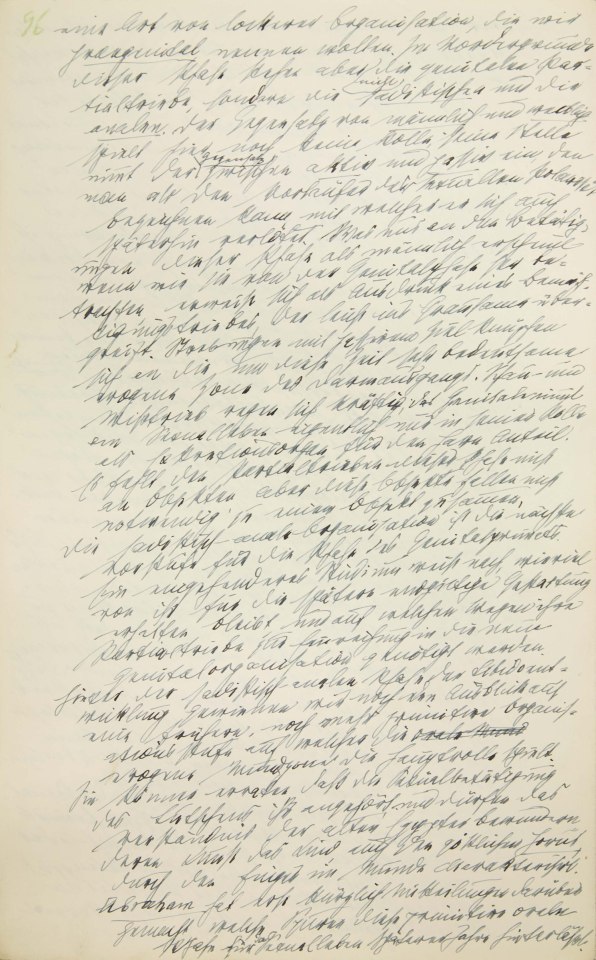 96
eine Art von lockerer Organisation, die wir
praegenital nennen wollen. Im Vordergrunde
dieser Phase stehen aber nicht die genitalen Par-
tialtriebe, sondern die sadistischen und die
analen. Der Gegensatz von männlich und weiblich
spielt hier noch keine Rolle; seine Stelle
nimt der Gegensatz zwischen aktiv und passiv ein, den
man als den Vorläufer der sexuellen Polarität
bezeichnen kann, mit welcher er sich auch
späterhin verlötet. Was uns an den Betätig-
ungen dieser Phase als männlich erscheint
wenn wir sie von der Genitalphase her be-
trachten, erweist sich als Ausdruck eines Bemäch-
tigungstriebes, der leicht ins Grausame über-
greift. Strebungen mit passivem Ziel knüpfen
sich an die um diese Zeit sehr bedeutsame
erogene Zone des Darmausgangs. Schau- und
Wisstrieb regen sich kräftig, das Genitale nimmt
am Sexualleben eigentlich nur in seiner Rolle
als Exkretionsorgan für den Harn Anteil.
Es fehlt den Partialtrieben dieser Phase nicht
an Objekten, aber diese Objekte fallen nicht
notwendig zu einem Objekt zusamen.
Die sadistisch-anale Organisation ist die nächste
Vorstufe für die Phase des Genitalprimats.
Ein eingehenderes Studium weist nach, wieviel
von ihr für die spätere endgiltige Gestaltung
erhalten bleibt und auf welchen Wegen ihre
Partialtriebe zur Einreihung in die neue
Genitalorganisation genötigt werden.
Hinter der sadistisch-analen Phase der Libidoent-
wicklung gewinnen wir noch den Ausblick auf
eine frühere, noch mehr primitive Organis-
ationsstufe, auf welcher die orale Mund
erogene Mundzone die Hauptrolle spielt.
Sie können erraten, daß die Sexualbetätigung
des Lutschens ihr angehört, und dürfen das
Verständnis der alten Egypter bewundern
deren Kunst das Kind, auch den göttlichen Horus,
durch den Finger im Munde charakterisirt.
Abraham hat erst kürzlich Mitteilungen darüber
gemacht, welche Spuren diese primitive orale
Phase für das Sexualleben späterer Jahre hinterläßt.